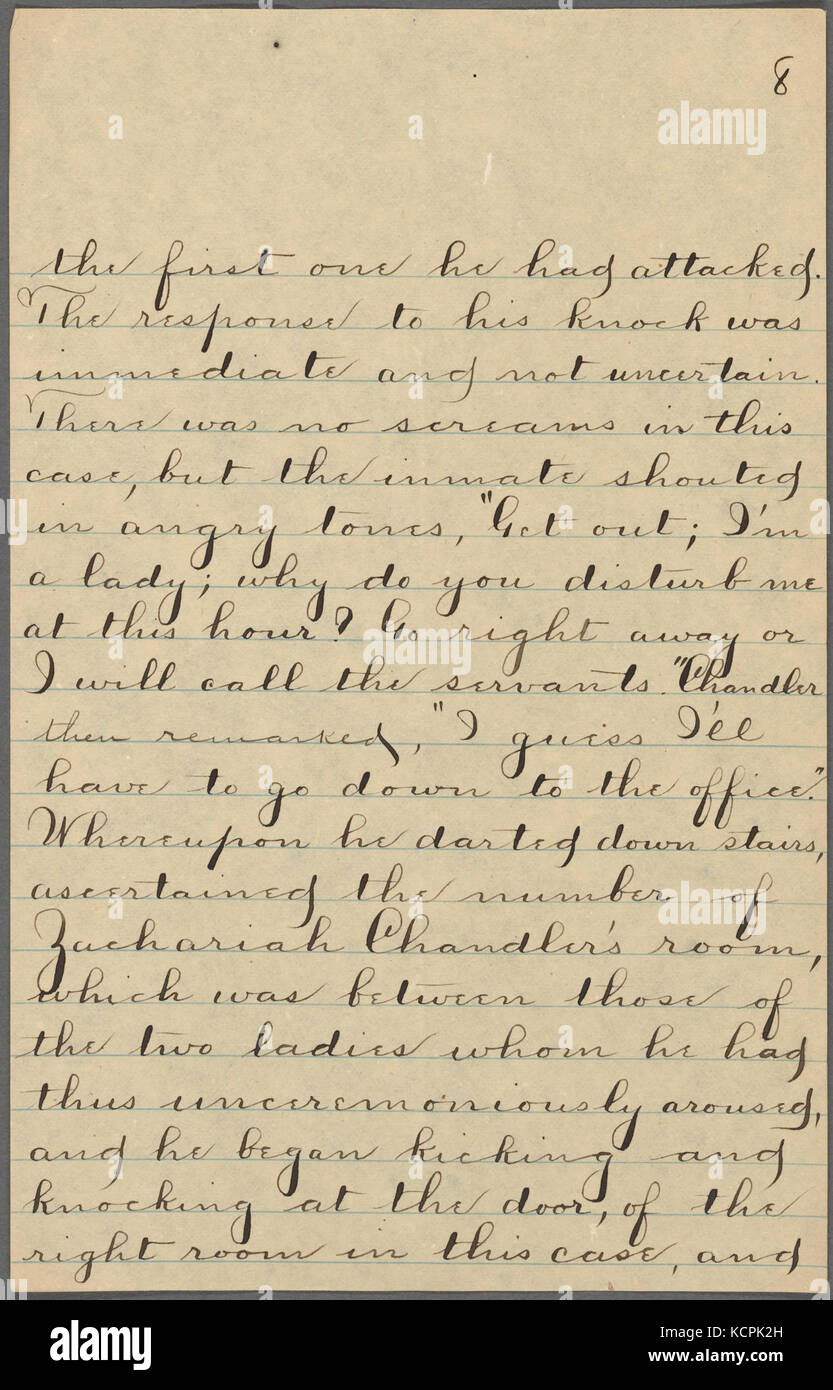 8
the first one he had attacked.
The response to his knock was
immediate and not uncertain.
There was no screams in this
case, but the inmate shouted
in angry tones, "Get out; I'm
a lady; why do you disturb me
at this hour? Go right away or
I will call the servants." Chandler
then remarked, "I guess I'll
have to go down to the office."
Whereupon he darted down stairs,
ascertained the number of
Zachariah Chandler's room,
which was between those of
the two ladies whom he had
thus unceremoniously aroused,
and he began kicking and
knocking at the door, of the
right room in this case, and
a
a
alamy
a
a
alamy
alamy
Image ID: KCPK2H
www.alamy.com